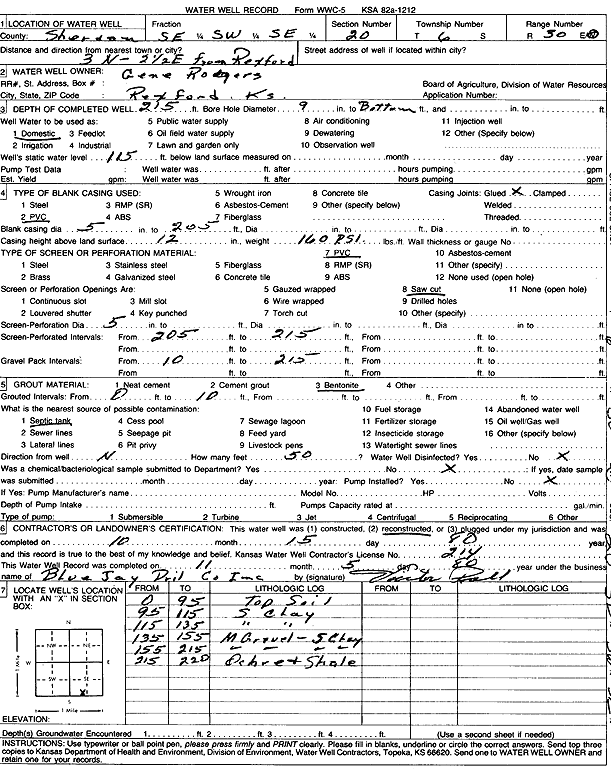 WATER WELL RECORD Form WWC-5 KSA 82a-1212
1 LOCATION OF WATER WELL Fraction Section Number Township Number Range Number
County: Sheridan SE ¼ SW ¼ SE ¼ 20 T 6 S R 30 E(W)
Distance and direction from nearest town or city? Street address of well if located within city?
3 N - 2 1/2 E from Rexford
2 WATER WELL OWNER: Gene Rodgers
RR#, St. Address, Box # : Board of Agriculture, Division of Water Resources
City, State, ZIP Code : Rexford, Ks. Application Number:
3 DEPTH OF COMPLETED WELL 215 ft. Bore Hole Diameter 9 in. to Bottom ft., and in. to ft.
Well Water to be used as: 5 Public water supply 8 Air conditioning 11 Injection well
1 Domestic 3 Feedlot 6 Oil field water supply 9 Dewatering 12 Other (Specify below)
2 Irrigation 4 Industrial 7 Lawn and garden only 10 Observation well
Well's static water level 115 ft. below land surface measured on month day year
Pump Test Data : Well water was ft. after hours pumping gpm
Est. Yield gpm: Well water was ft. after hours pumping gpm
4 TYPE OF BLANK CASING USED: 5 Wrought iron 8 Concrete tile Casing Joints: Glued X Clamped
1 Steel 3 RMP (SR) 6 Asbestos-Cement 9 Other (specify below) Welded
2 PVC 4 ABS 7 Fiberglass Threaded
Blank casing dia 5 in. to 205 ft., Dia in. to ft., Dia in. to ft.
Casing height above land surface 12 in., weight 160 PSI lbs./ft. Wall thickness or gauge No
TYPE OF SCREEN OR PERFORATION MATERIAL: 7 PVC 10 Asbestos-cement
1 Steel 3 Stainless steel 5 Fiberglass 8 RMP (SR) 11 Other (specify)
2 Brass 4 Galvanized steel 6 Concrete tile 9 ABS 12 None used (open hole)
Screen or Perforation Openings Are: 5 Gauzed wrapped 8 Saw cut 11 None (open hole)
1 Continuous slot 3 Mill slot 6 Wire wrapped 9 Drilled holes
2 Louvered shutter 4 Key punched 7 Torch cut 10 Other (specify)
Screen-Perforation Dia 5 in. to ft., Dia in. to ft., Dia in. to ft.
Screen-Perforated Intervals: From 205 ft. to 215 ft., From ft. to ft.
From ft. to ft., From ft. to ft.
Gravel Pack Intervals: From 10 ft. to 215 ft., From ft. to ft.
From ft. to ft., From ft. to ft.
5 GROUT MATERIAL: 1 Neat cement 2 Cement grout 3 Bentonite 4 Other
Grouted Intervals: From 0 ft. to 10 ft., From ft. to ft., From ft. to ft.
What is the nearest source of possible contamination: 10 Fuel storage 14 Abandoned water well
1 Septic tank 4 Cess pool 7 Sewage lagoon 11 Fertilizer storage 15 Oil well/Gas well
2 Sewer lines 5 Seepage pit 8 Feed yard 12 Insecticide storage 16 Other (specify below)
3 Lateral lines 6 Pit privy 9 Livestock pens 13 Watertight sewer lines
Direction from well N How many feet 50 ? Water Well Disinfected? Yes No X
Was a chemical/bacteriological sample submitted to Department? Yes No X : If yes, date sample
was submitted month day year: Pump Installed? Yes No X
If Yes: Pump Manufacturer's name Model No. HP Volts
Depth of Pump Intake ft. Pumps Capacity rated at gal./min.
Type of pump: 1 Submersible 2 Turbine 3 Jet 4 Centrifugal 5 Reciprocating 6 Other
6 CONTRACTOR'S OR LANDOWNER'S CERTIFICATION: This water well was (1) constructed, (2) reconstructed, or (3) plugged under my jurisdiction and was
completed on 10 month 15 day 80 year
and this record is true to the best of my knowledge and belief. Kansas Water Well Contractor's License No. 214
This Water Well Record was completed on 11 month 5 day 80 year under the business
name of Blue Jay Dril Co Inc by (signature)
7 LOCATE WELL'S LOCATION WITH AN "X" IN SECTION BOX: FROM TO LITHOLOGIC LOG FROM TO LITHOLOGIC LOG
0 95 Top Soil
95 115 S Clay
115 135 " "
135 155 M Gravel - S Clay
155 215
215 220 Ochre + Shale
N
NW NE
W E
SW SE
X
S
1 Mile
1 Mile
ELEVATION:
Depth(s) Groundwater Encountered 1. ft. 2. ft. 3. ft. 4. ft. (Use a second sheet if needed)
INSTRUCTIONS: Use typewriter or ball point pen, please press firmly and PRINT clearly. Please fill in blanks, underline or circle the correct answers. Send top three
copies to Kansas Department of Health and Environment, Division of Environment, Water Well Contractors, Topeka, KS 66620. Send one to WATER WELL OWNER and
retain one for your records.